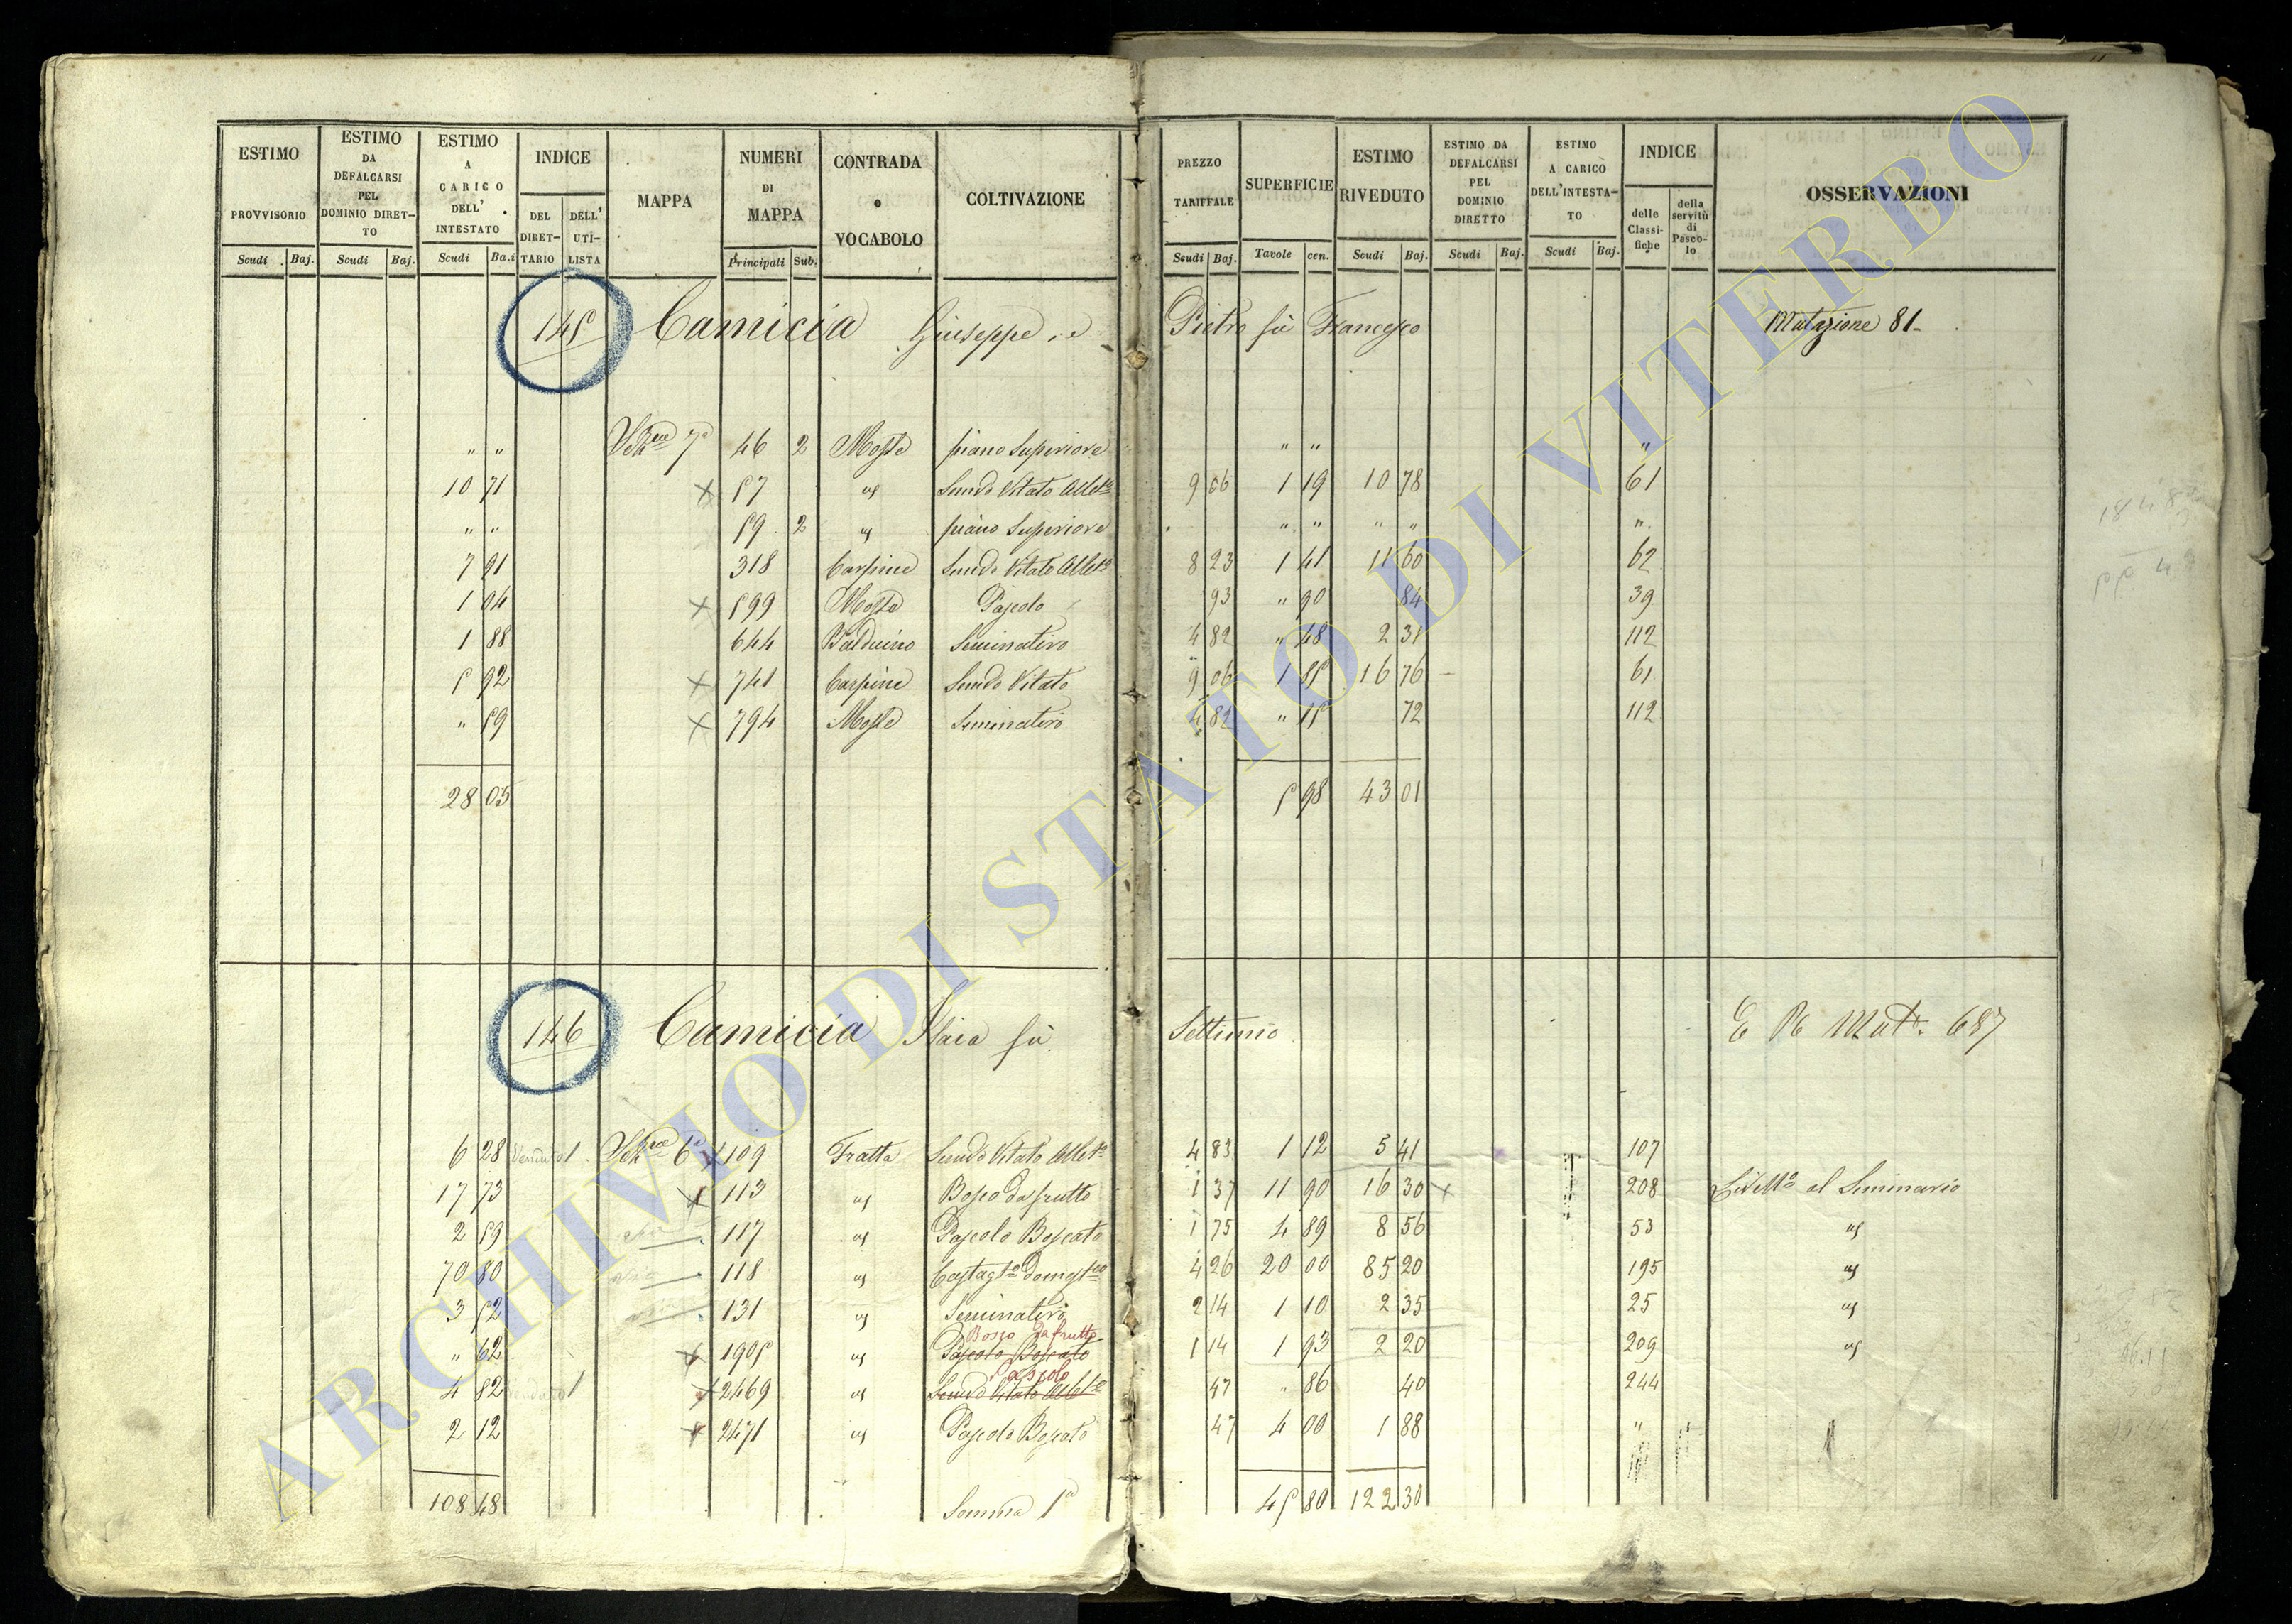 ESTIMO PROVVISORIO
Scudi Baj.
ESTIMO DA DEFALCARSI PEL DOMINIO DIRETTO
Scudi Baj.
ESTIMO A CARICO DELL' INTESTATO
Scudi Ba.i
INDICE
DEL DIRETTARIO
DELL' UTILISTA
MAPPA
NUMERI DI MAPPA
Principali Sub.
CONTRADA o VOCABOLO
COLTIVAZIONE
PREZZO TARIFFALE
Scudi Baj.
SUPERFICIE
Tavole cen.
ESTIMO RIVEDUTO
Scudi Baj.
ESTIMO DA DEFALCARSI PEL DOMINIO DIRETTO
Scudi Baj.
ESTIMO A CARICO DELL'INTESTATO
Scudi Baj.
INDICE
delle Classifiche
della servitù di Pascolo
OSSERVAZIONI
145 Camicia Giuseppe, e Pietro fù Francesco Mutazione 81
" " Sez.ne 7a 46 2 Mosse piano Superiore " " "
10 71 57 " Semdo Vitato Allto 9 06 1 19 10 78 61
" " 59 2 " piano Superiore " " " " "
7 91 318 Carpine Semdo Vitato Allto 8 23 1 41 11 60 62
1 04 599 Mosse Pascolo 93 " 90 84 39
1 88 644 Balduino Seminativo 4 82 " 48 2 31 112
5 92 741 Carpine Semdo Vitato 9 06 1 85 16 76 61
" 59 794 Mosse Seminativo 4 82 " 15 72 112
28 05 5 98 43 01
146 Camicia Isaia fù Settimio E R Mute 687
6 28 Venduto 1 Sez.ne 6a 109 Fratta Semdo Vitato Allto 4 83 1 12 5 41 107
17 73 113 " Bosco da frutto 1 37 11 90 16 30 208 Livello al Seminario
2 59 117 " Pascolo Boscato 1 75 4 89 8 56 53 "
70 80 118 " Castagto domestco 4 26 20 00 85 20 195 "
3 52 131 " Seminativo 2 14 1 10 2 35 25 "
Bosco da frutto
" 62 1905 " Pascolo Boscato 1 14 1 93 2 20 209 "
Pascolo
4 82 Venduto 1 2469 " Semdo Vitato Allto 47 " 86 40 244
2 12 2471 " Pascolo Boscato 47 4 00 1 88 "
108 48 Somma 1a 45 80 122 30
ARCHIVIO DI STATO DI VITERBO